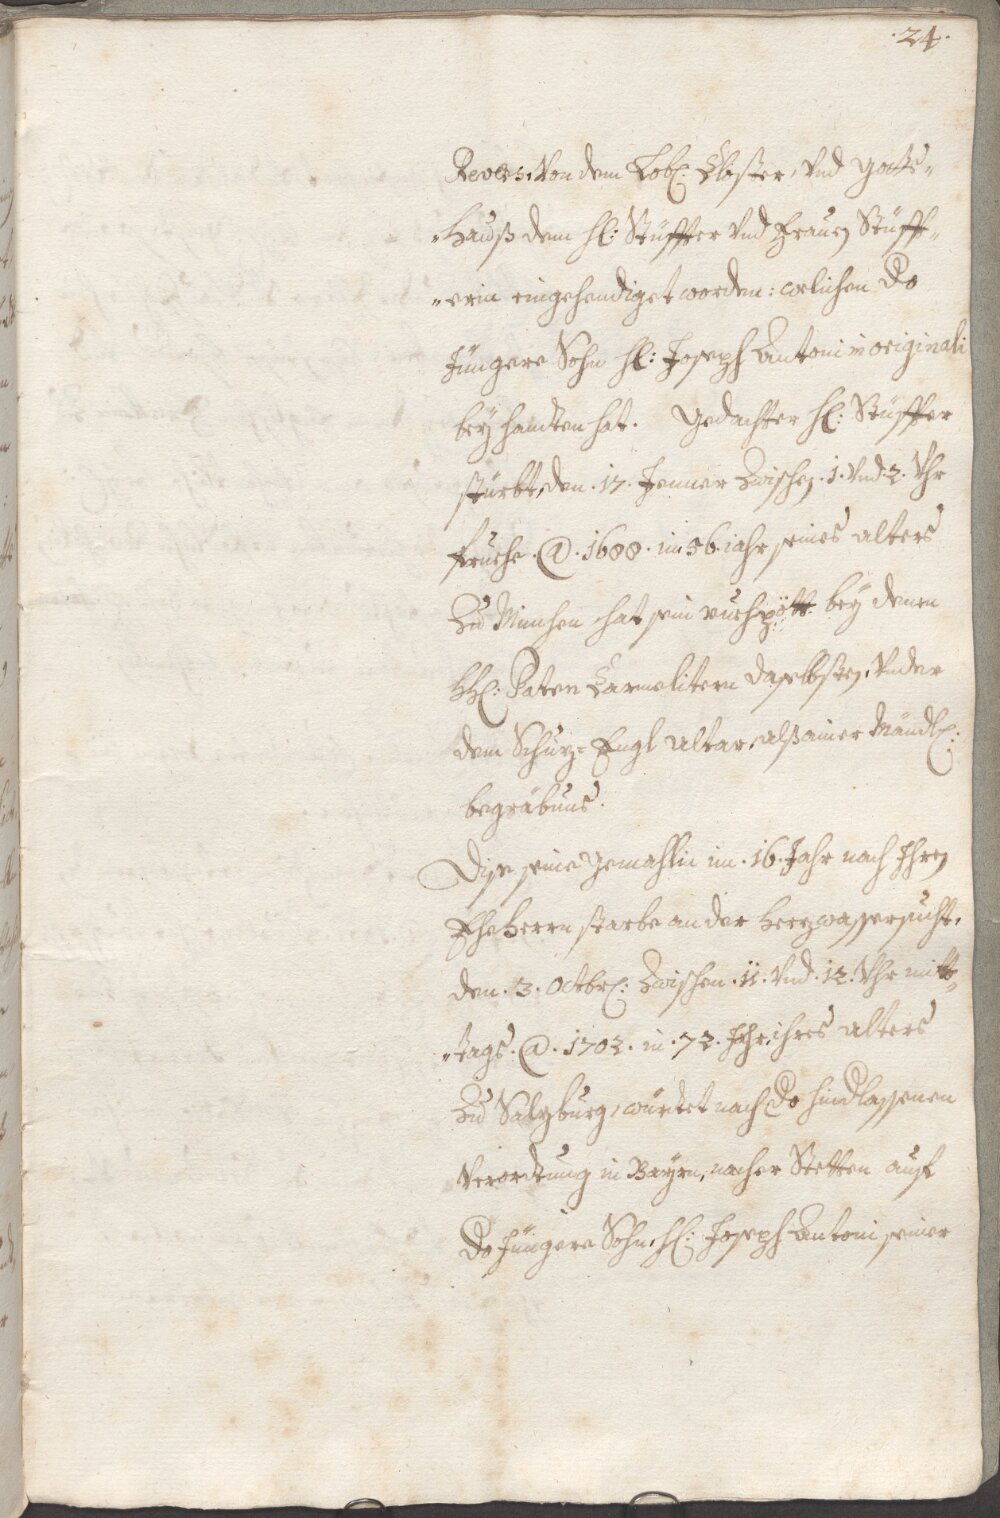 ·24·
Revers, Von dem Lobl: Closter, Vnd Gotts„
„Hauß dem hl: Stüffter Vnd Frauen Stüff„
„erin eingehendiget worden: welichen Do
Jüngere Sohn hl: Joseph Antoni in originali
bey handten hat. Gedachter hl: Stüffter
stürbt, den .17. Jenner Zwischen .1. Vnd .2. Vhr
fruehe .@. 1688. im 56 iahr seines alters
Zu Minchen hat sein ruehspött bey denen
HHl: Paten Carmelitern daselbsten, Vnder
dem Schuz= Engl Altar, alß ainer Mändl:
begräbnus.
Dise seine Gemahlin im .16. Jahr nach Ihren
EheHerrn starbe an der Herzwassersucht,
den .3. Octbr: Zwischen .11. Vnd .12. Vhr mitt„
„tags .@. 1703. in .72. Jahr ihres alters
Zu Salzburg, würdet nach Do hindlassenen
Verordtnung in Bayrn, nacher Stetten auf
Do Jüngere Sohn, hl: Joseph Antoni seiner